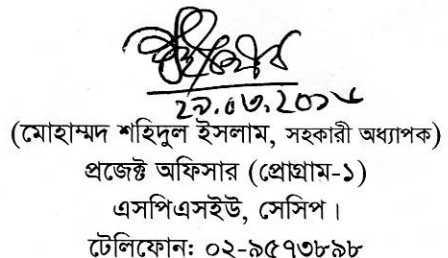 (মোহাম্মদ শহিদুল ইসলাম, সহকারী অধ্যাপক)
প্রজেক্ট অফিসার (প্রোগ্রাম-১)
এসপিএসইউ, সেসিপ।
টেলিফোন: ০২-৯৫৭৩৮৯৮